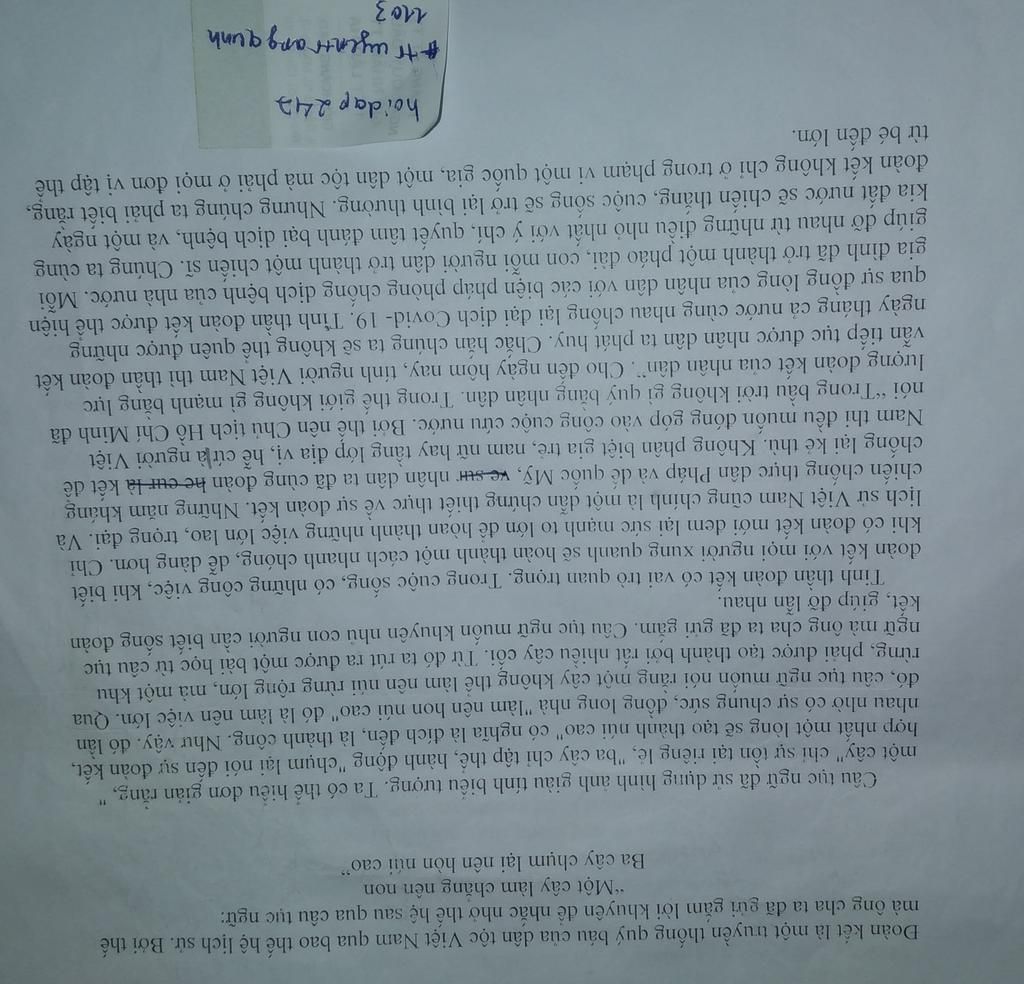 Đoàn kết là một truyền thống quý báu của dân tộc Việt Nam qua bao thế hệ lịch sử. Bởi thế
mà ông cha ta đã gửi gắm lời khuyên để nhắc nhở thế hệ sau qua câu tục ngữ:
“Một cây làm chẳng nên non
Ba cây chụm lại nên hòn núi cao”
Câu tục ngữ đã sử dụng hình ảnh giàu tính biểu tượng. Ta có thể hiểu đơn giản rằng, "
một cây" chỉ sự tồn tại riêng lẻ, "ba cây chỉ tập thể, hành động "chụm lại nói đến sự đoàn kết,
hợp nhất một lòng sẽ tạo thành núi cao" có nghĩa là đích đến, là thành công. Như vậy. đó lần
nhau nhờ có sự chung sức, đồng long nhà "làm nên hon núi cao" đó là làm nên việc lớn. Qua
đó, câu tục ngữ muốn nói rằng một cây không thể làm nên núi rừng rộng lớn, mà một khu
rừng, phải được tạo thành bởi rất nhiều cây cối. Từ đó ta rút ra được một bài học từ câu tục
ngữ mà ông cha ta đã gửi gắm. Câu tục ngữ muốn khuyên nhu con người cần biết sống đoàn
kết, giúp đỡ lẫn nhau.
Tinh thần đoàn kết có vai trò quan trọng. Trong cuộc sống, có những công việc, khi biết
đoàn kết với mọi người xung quanh sẽ hoàn thành một cách nhanh chóng, dễ dàng hơn. Chỉ
khi có đoàn kết mới đem lại sức mạnh to lớn để hoàn thành những việc lớn lao, trọng đại. Và
lịch sử Việt Nam cũng chính là một dẫn chứng thiết thực về sự đoàn kết. Những năm kháng
chiến chống thực dân Pháp và đế quốc Mỹ, nhân dân ta đã cùng đoàn kết để
chống lại kẻ thù. Không phân biệt gia trẻ, nam nữ hay tầng lớp địa vị, hễ cứ là người Việt
Nam thì đều muốn đóng góp vào công cuộc cứu nước. Bởi thế nên Chủ tịch Hồ Chí Minh đã
nói “Trong bầu trời không gì quý bằng nhân dân. Trong thế giới không gì mạnh bằng lực
lượng đoàn kết của nhân dân”. Cho đến ngày hôm nay, tính người Việt Nam thì thần đoàn kết
vẫn tiếp tục được nhân dân ta phát huy. Chắc hẳn chúng ta sẽ không thể quên được những
ngày tháng cả nước cùng nhau chống lại đại dịch Covid- 19. Tinh thần đoàn kết được thể hiện
qua sự đồng lòng của nhân dân với các biện pháp phòng chống dịch bệnh của nhà nước. Mỗi
gia đình đã trở thành một pháo đài, con mỗi người dân trở thành một chiến sĩ. Chúng ta cùng
giúp đỡ nhau từ những điều nhỏ nhất với ý chí, quyết tâm đánh bại dịch bệnh, và một ngày
kia đất nước sẽ chiến thắng, cuộc sống sẽ trở lại bình thường. Nhưng chúng ta phải biết rằng,
đoàn kết không chỉ ở trong phạm vi một quốc gia, một dân tộc mà phải ở mọi đơn vị tập thể
từ bé đến lớn.
hoidap242
truyentrangquynh
1103